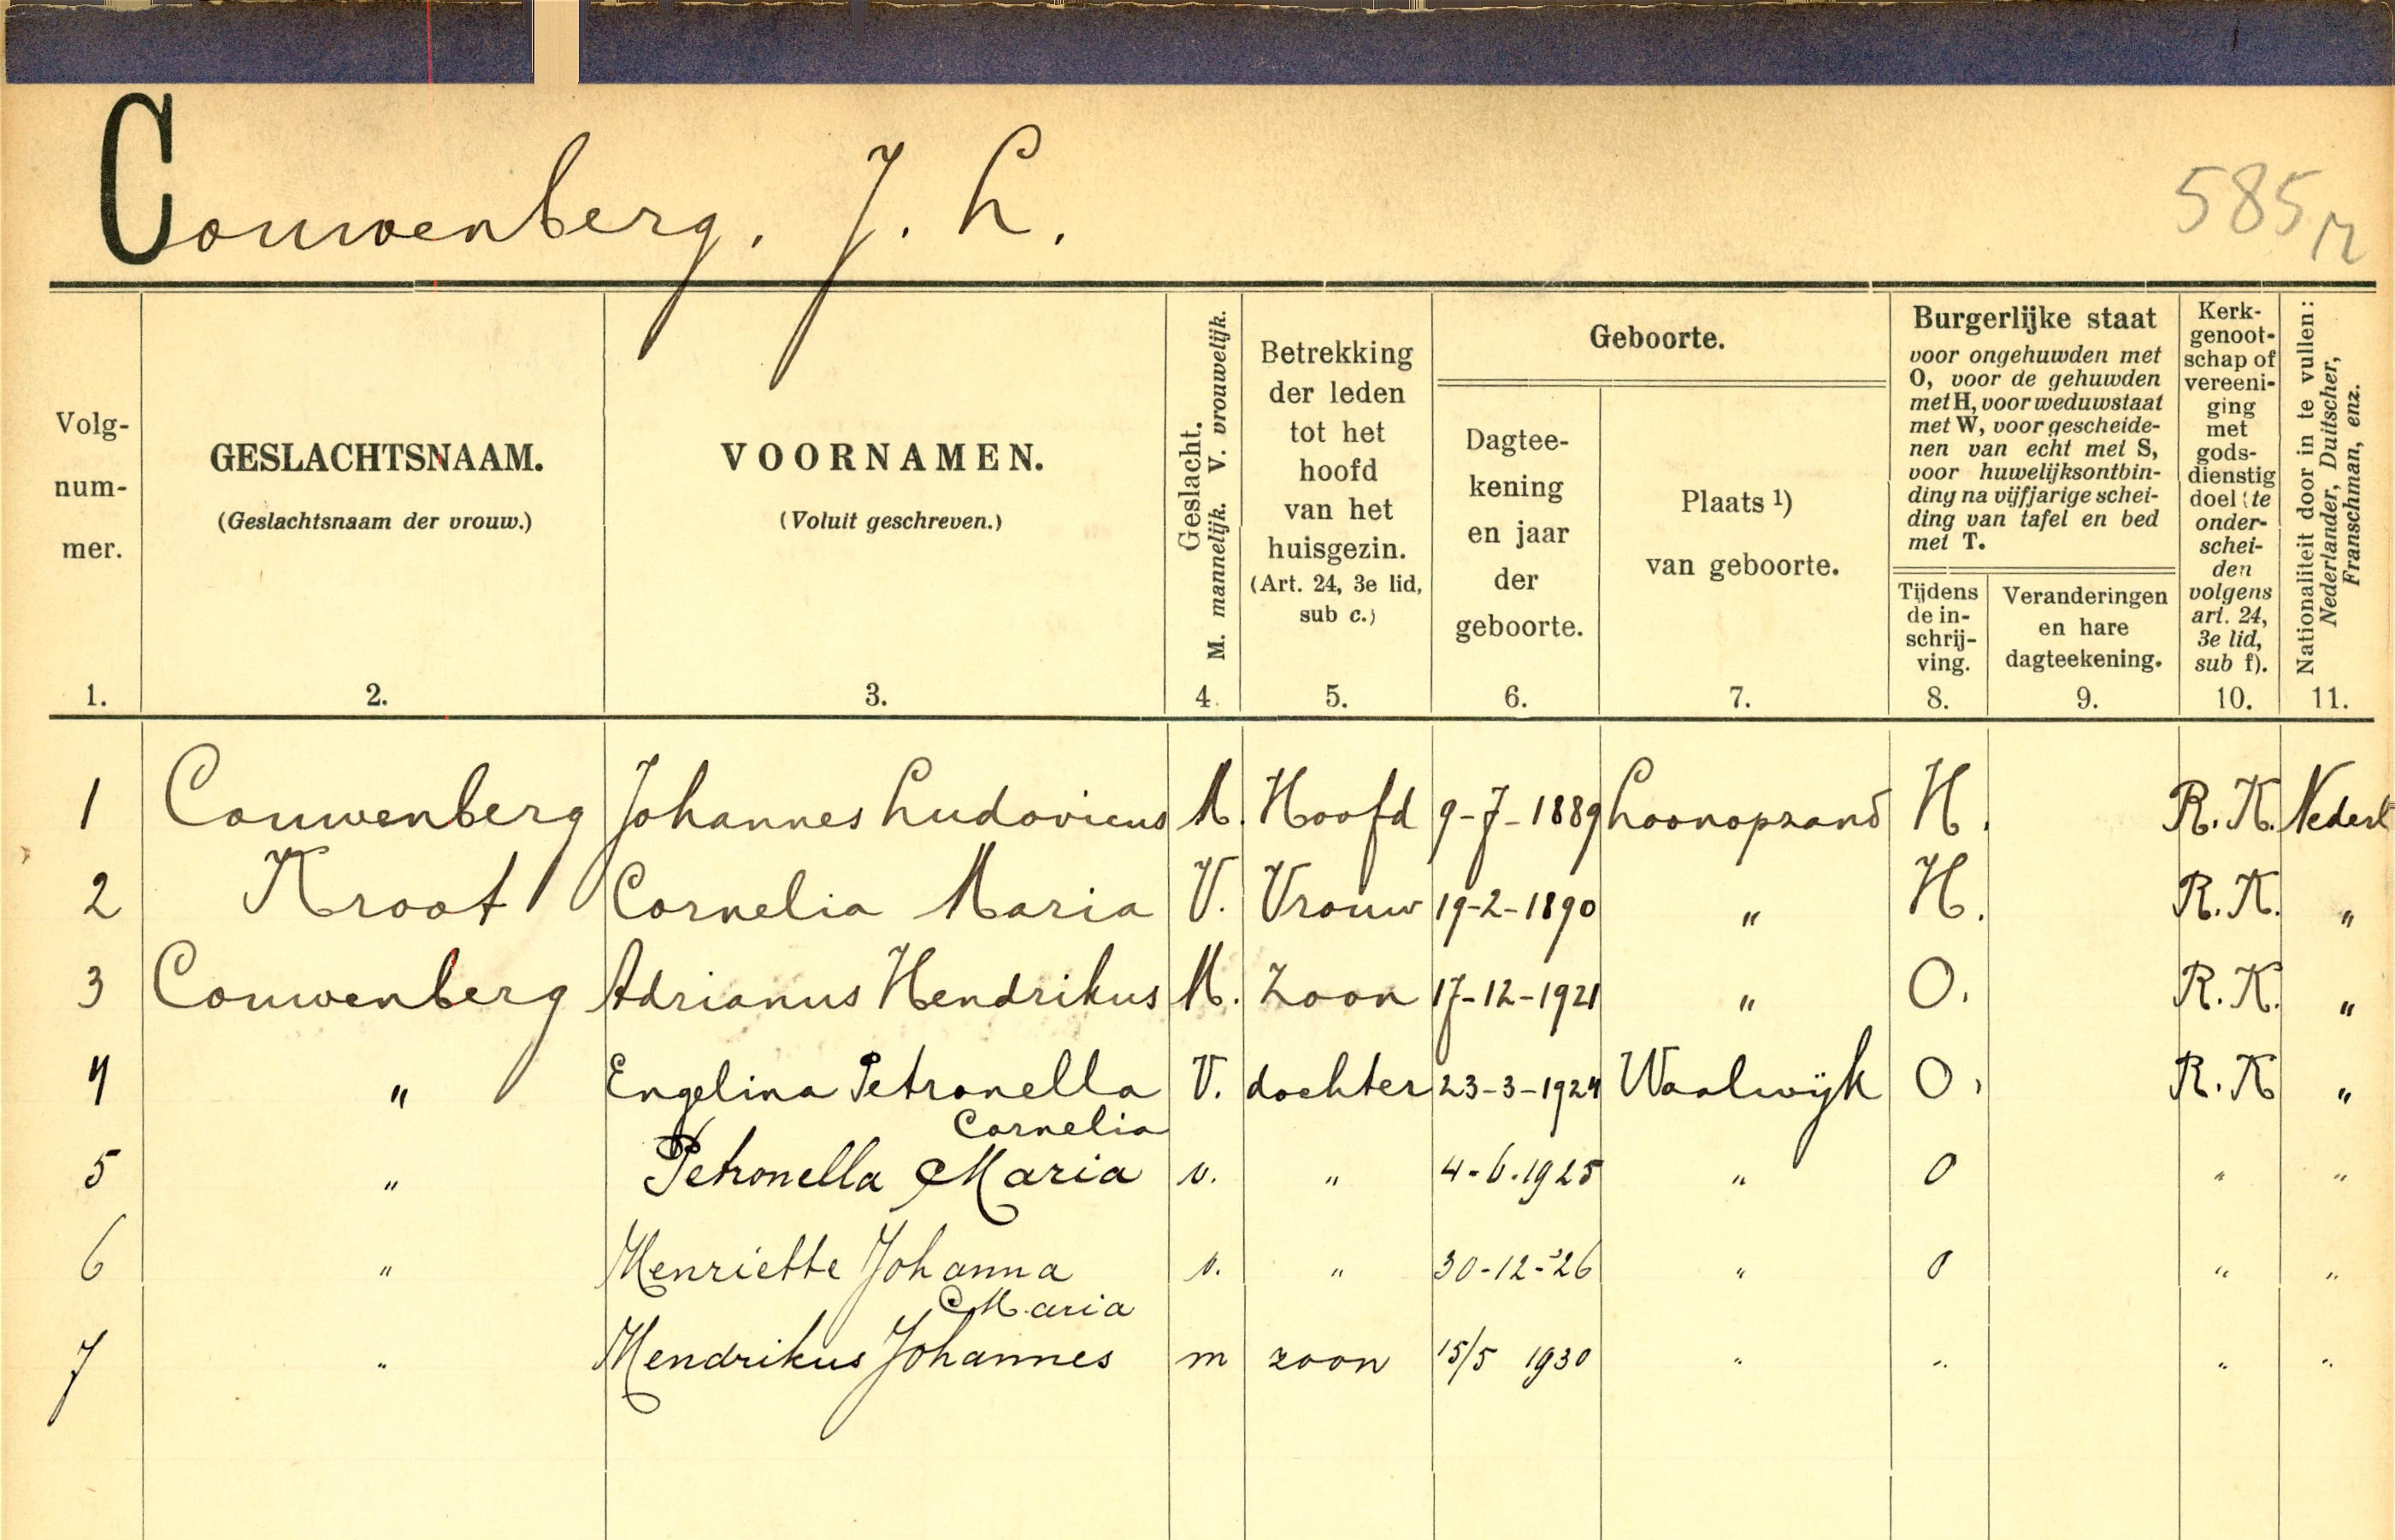 Couwenberg. J. L.
585 M
Volg-
num-
mer.
1.
GESLACHTSNAAM.
(Geslachtsnaam der vrouw.)
2.
VOORNAMEN.
(Voluit geschreven.)
3.
Geslacht.
M. mannelijk. V. vrouwelijk.
4.
Betrekking
der leden
tot het
hoofd
van het
huisgezin.
(Art. 24, 3e lid,
sub c.)
5.
Geboorte.
Dagtee-
kening
en jaar
der
geboorte.
6.
Plaats 1)
van geboorte.
7.
Burgerlijke staat
voor ongehuwden met
O, voor de gehuwden
met H, voor weduwstaat
met W, voor gescheide-
nen van echt met S,
voor huwelijksontbin-
ding na vijfjarige schei-
ding van tafel en bed
met T.
Tijdens
de in-
schrij-
ving.
8.
Veranderingen
en hare
dagteekening.
9.
Kerk-
genoot-
schap of
vereeni-
ging
met
gods-
dienstig
doel (te
onder-
schei-
den
volgens
art. 24,
3e lid,
sub f).
10.
Nationaliteit door in te vullen:
Nederlander, Duitscher,
Franschman, enz.
11.
1 Couwenberg Johannes Ludovicus M. Hoofd 9-7-1889 Loonopzand H. R.K. Nederl
2 Kroot Cornelia Maria V. Vrouw 19-2-1890 " H. R.K. "
3 Couwenberg Adrianus Hendrikus M. Zoon 17-12-1921 " O. R.K. "
4 " Engelina Petronella V. dochter 23-3-1924 Waalwijk O. R.K "
Cornelia
5 " Petronella Maria v. " 4-6-1925 " O " "
6 " Henriette Johanna v. " 30-12-'26 " O " "
Maria
7 " Hendrikus Johannes m zoon 15/5 1930 " " " "